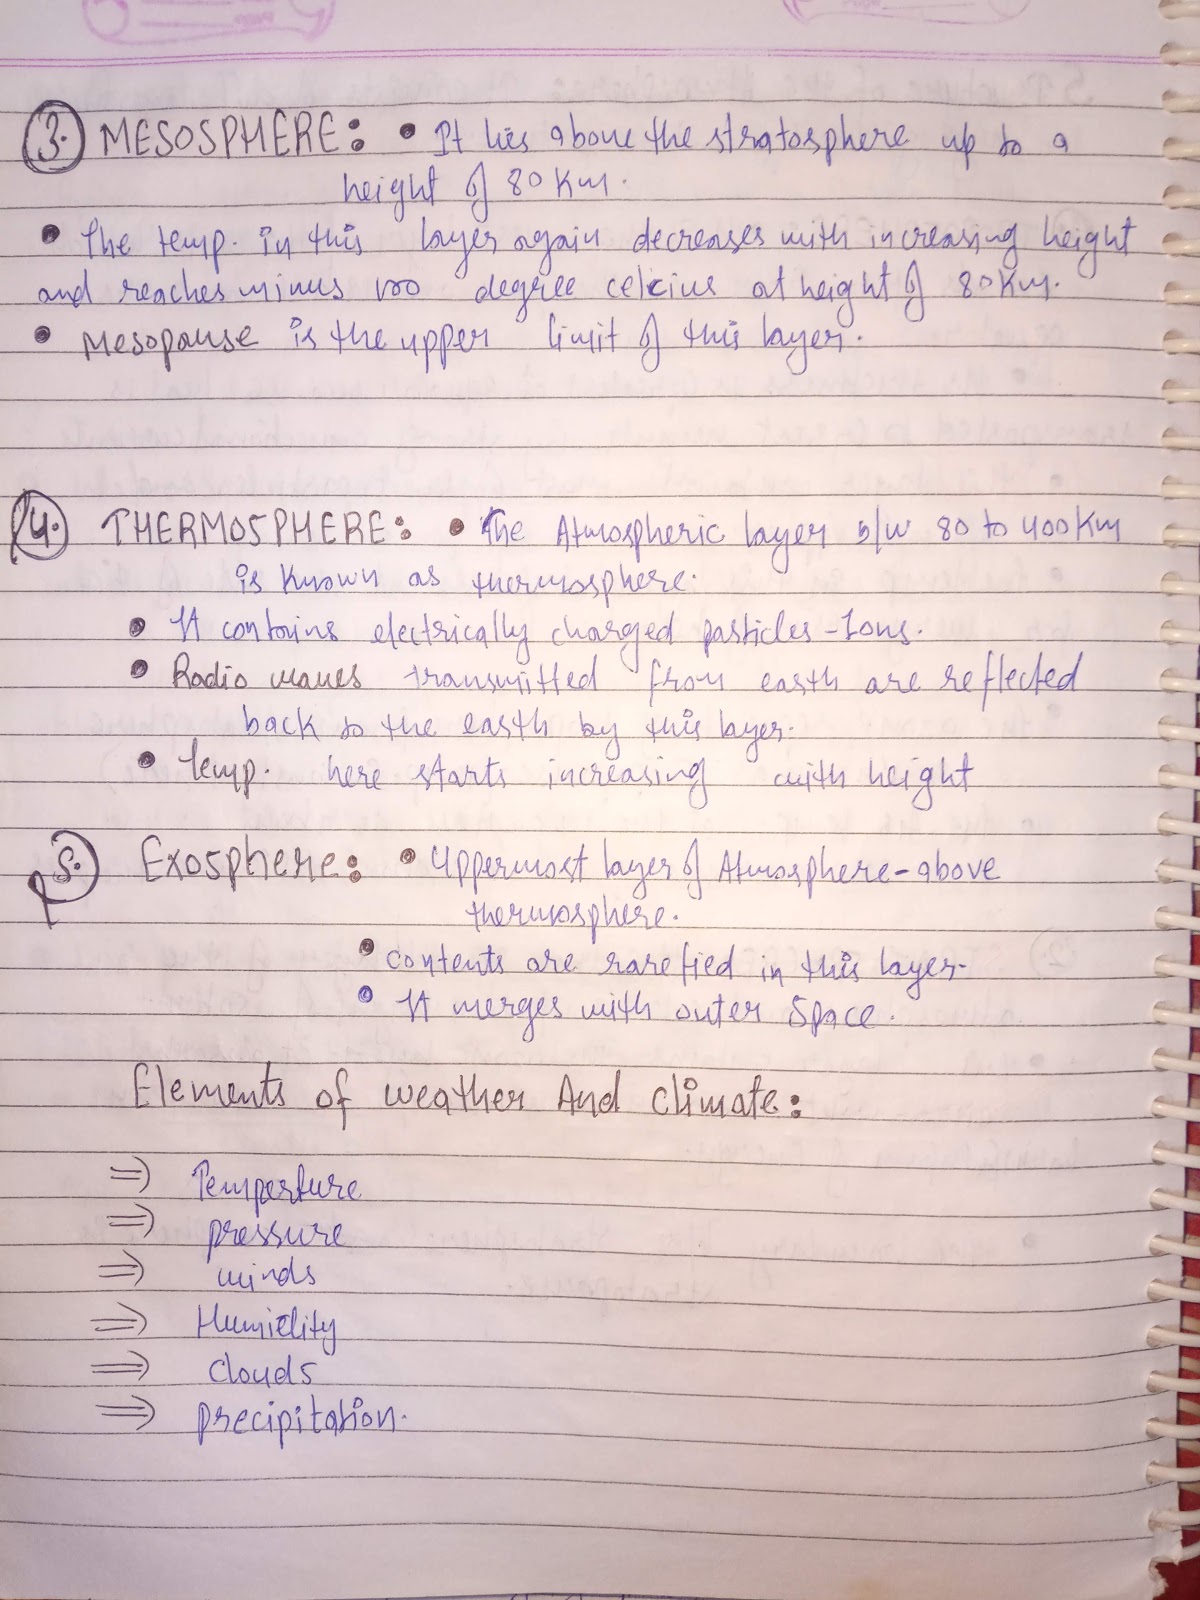 3. MESOSPHERE: • It lies above the stratosphere up to a
height of 80 Km.
• The temp. in this layer again decreases with increasing height
and reaches minus 100 degree celcius at height of 80 Km.
• Mesopause is the upper limit of this layer.
4. THERMOSPHERE: • The Atmospheric layer b/w 80 to 400 Km
is Known as thermosphere.
• It contains electrically charged particles - Ions.
• Radio waves transmitted from earth are reflected
back to the earth by this layer.
• Temp. here starts increasing with height
5. Exosphere: • Uppermost layer of Atmosphere - above
thermosphere.
• contents are rarefied in this layer.
• It merges with outer Space.
Elements of weather And climate:
⇒ Temperture
⇒ pressure
⇒ winds
⇒ Humidity
⇒ Clouds
⇒ precipitation.